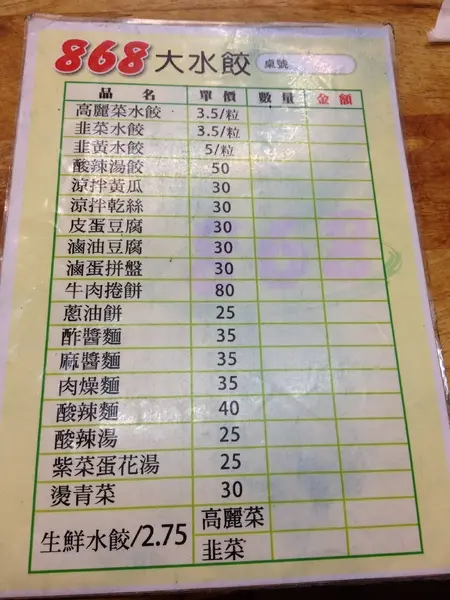 868大水餃 桌號
品名 單價 數量 金額
高麗菜水餃 3.5/粒
韭菜水餃 3.5/粒
韭黃水餃 5/粒
酸辣湯餃 50
涼拌黃瓜 30
涼拌乾絲 30
皮蛋豆腐 30
滷油豆腐 30
滷蛋拼盤 30
牛肉捲餅 80
蔥油餅 25
酢醬麵 35
麻醬麵 35
肉燥麵 35
酸辣麵 40
酸辣湯 25
紫菜蛋花湯 25
燙青菜 30
生鮮水餃/2.75 高麗菜
韭菜